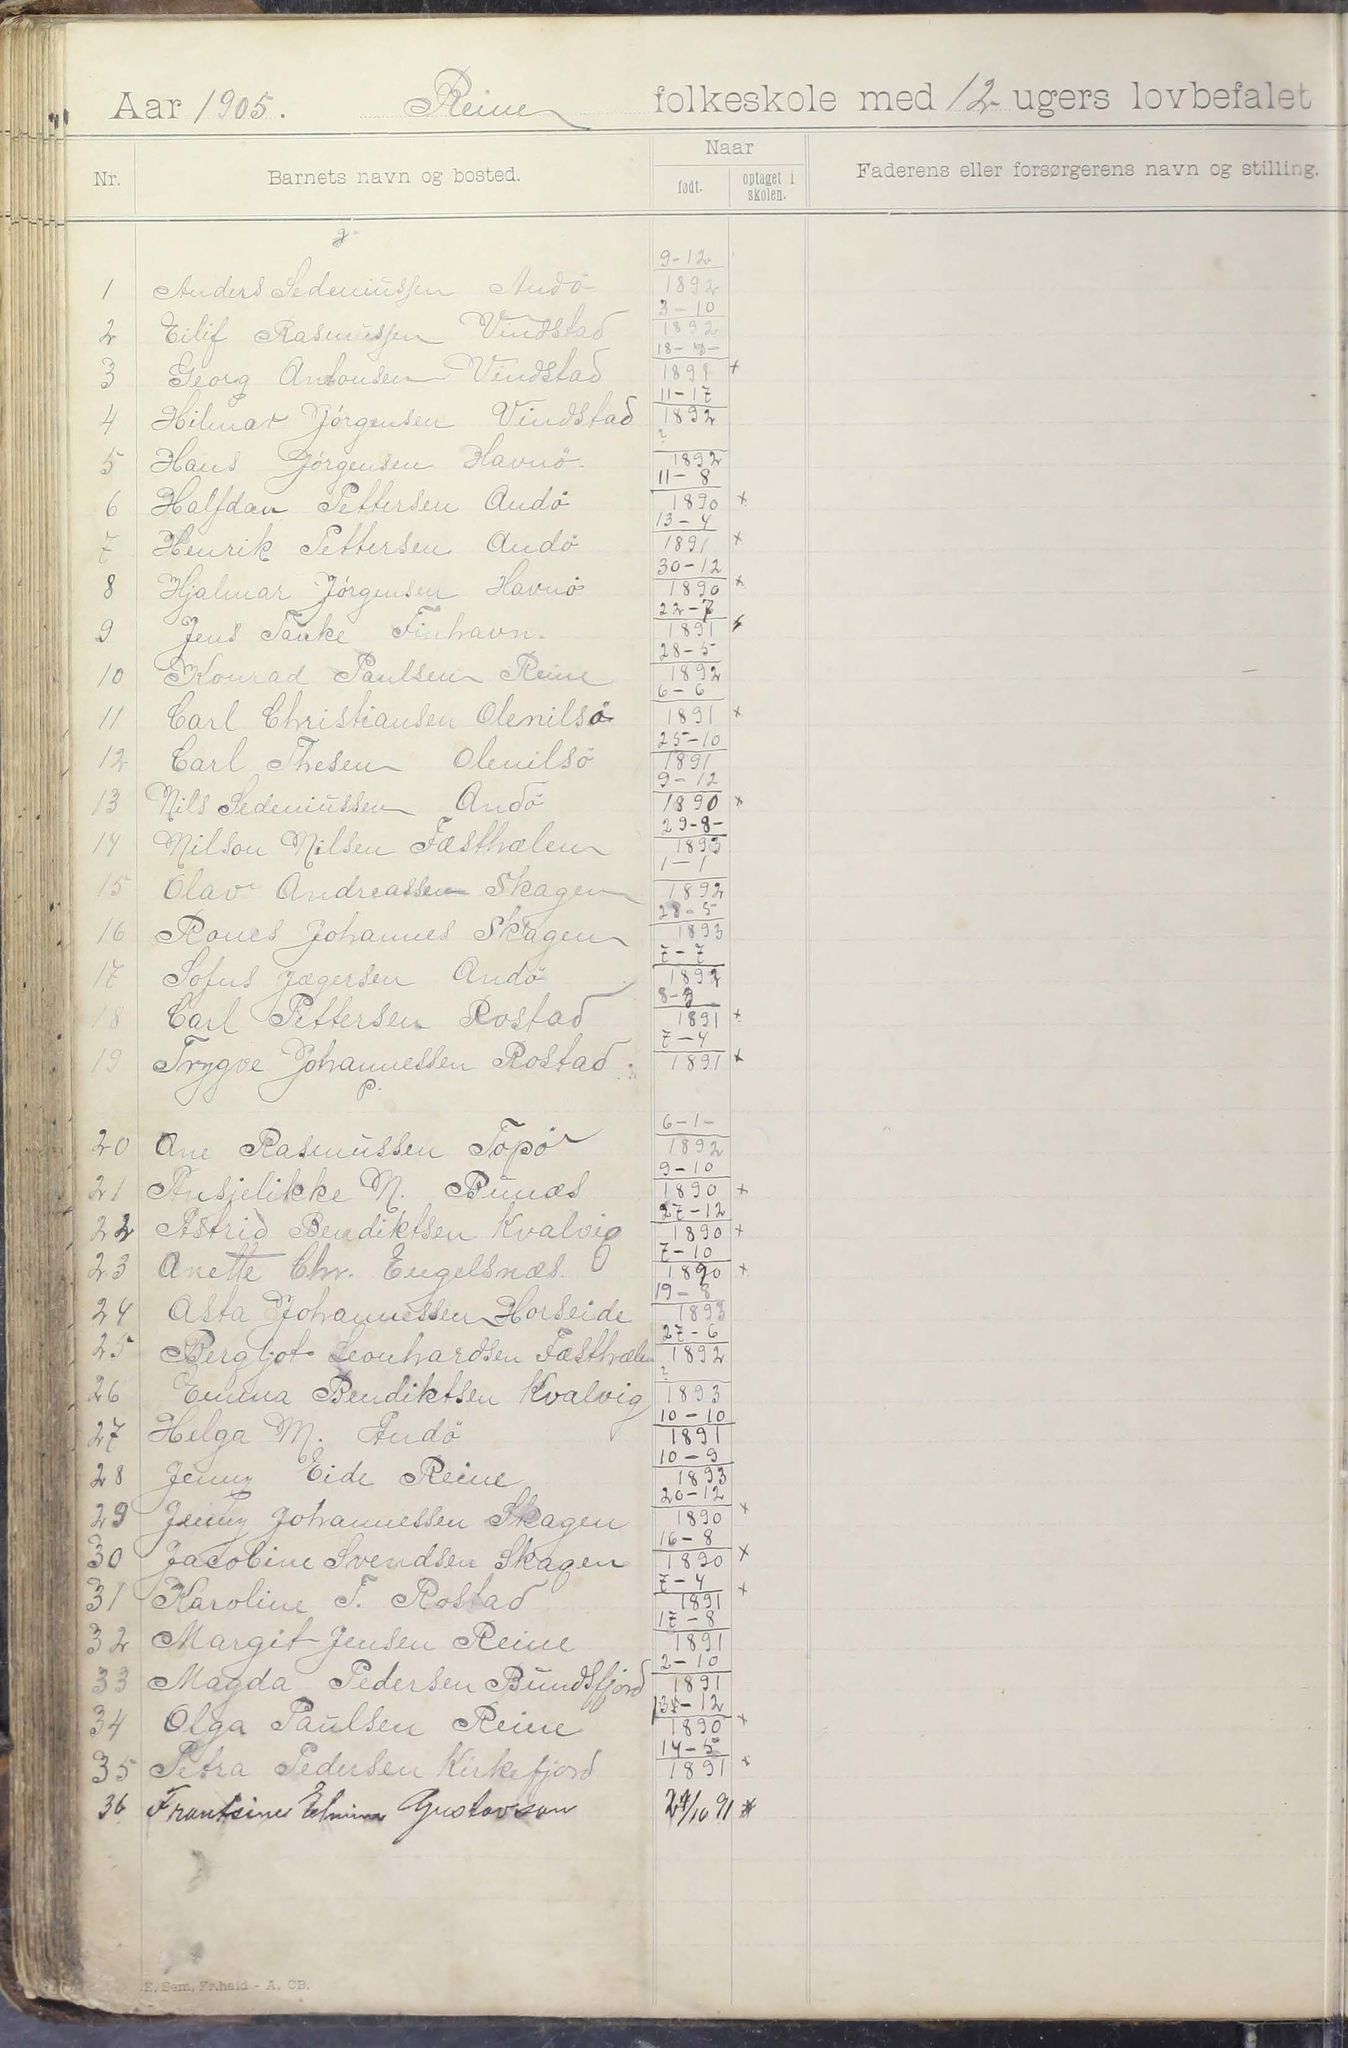 Aar 1905. Reine folkeskole med 12 ugers lovbefalet
Nr. Barnets navn og bosted. Naar født. optaget i skolen. Faderens eller forsørgerens navn og stilling.
g.
9-12
1 Anders Sedeniussen Andö 1892
3-10
2 Eilif Rasmussen Vindstad 1892
18-
3 Georg Antonsen Vindstad 1891 +
11-17
4 Hilmar Jörgensen Vindstad 1892
?
5 Hans Jörgensen Havnö 1892
11-8
6 Halfdan Pettersen Andö 1890 +
13-4
7 Henrik Pettersen Andö 1891 +
30-12
8 Hjalmar Jörgensen Havnö 1890 +
22-7
9 Jens Tanke Finhavn. 1891 +
28-5
10 Konrad Paulsen Reine 1892
6-6
11 Carl Christiansen Olenilsö 1891 +
25-10
12 Carl Thesen Olenilsö 1891
9-12
13 Nils Sedeniussen Andö 1890 +
29-8-
14 Nilson Nilsen Fæsthælen 1893
1-1
15 Olav Andreassen Skagen 1892
28-5
16 Rones Johannes Skagen 1893
7-7
17 Sofus Jægersen Andö 1892
8-3
18 Carl Pettersen Rostad 1891 +
7-4
19 Trygve Johannessen Rostad 1891 +
p.
6-1-
20 Ane Rasmussen Topö 1892
9-10
21 Ansjelikke N. Bunæs 1890 +
27-12
22 Astrid Bendiktsen Kvalvig 1890 +
7-10
23 Anette Chr. Engelsnæs. 1890 +
19-8
24 Asta Johannessen Horseide 1893
27-6
25 Bergljot Leonhardsen Fæsthælen 1892
?
26 Emma Bendiktsen Kvalvig 1893
10-10
27 Helga M. Andö 1891
10-9
28 Jenny Eide Reine 1893
20-12
29 Jenny Johannessen Skagen 1890 +
16-8
30 Jacobine Svendsen Skagen 1890 +
7-4
31 Karoline T. Rostad 1891 +
17-8
32 Margit Jensen Reine 1891
2-10
33 Magda Pedersen Bundsfjord 1891
31-12
34 Olga Paulsen Reine 1890 +
14-5
35 Petra Pedersen Kirkefjord 1891 +
36 Frantsine Elmina Gustavson 24/10 91 +
E. Sem, Fr.hald - A. CB.